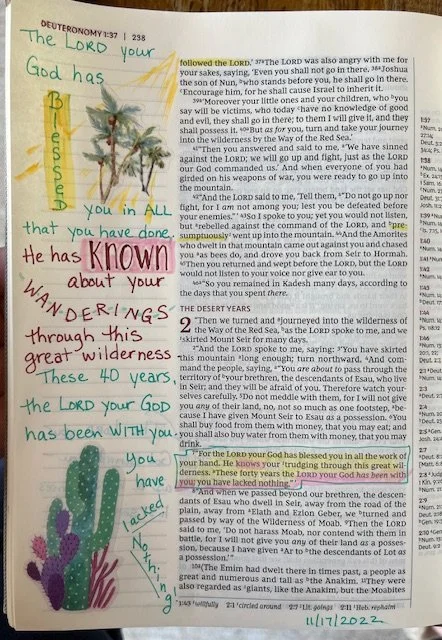 DEUTERONOMY 1:37 | 238
The LORD your
God has
Blessed
you in ALL
that you have done.
He has KNOWN
about your
WANDERINGS
through this
great wilderness
These 40 years,
the LORD your GOD
has been WITH YOU
you
have
lacked
Nothing
followed the LORD.' 37aThe LORD was also angry with me for
your sakes, saying, 'Even you shall not go in there. 38aJoshua
the son of Nun, bwho stands before you, he shall go in there.
cEncourage him, for he shall cause Israel to inherit it.
39a'Moreover your little ones and your children, who byou
say will be victims, who today chave no knowledge of good
and evil, they shall go in there; to them I will give it, and they
shall possess it. 40aBut as for you, turn and take your journey
into the wilderness by the Way of the Red Sea.'
41"Then you answered and said to me, a'We have sinned
against the LORD; we will go up and fight, just as the LORD
our God commanded us.' And when everyone of you had
girded on his weapons of war, you were ready to go up into
the mountain.
42"And the LORD said to me, 'Tell them, a"Do not go up nor
fight, for I am not among you; lest you be defeated before
your enemies." ' 43So I spoke to you; yet you would not listen,
but arebelled against the command of the LORD, and bpre-
sumptuously went up into the mountain. 44And the Amorites
who dwelt in that mountain came out against you and chased
you aas bees do, and drove you back from Seir to Hormah.
45Then you returned and wept before the LORD, but the LORD
would not listen to your voice nor give ear to you.
46a"So you remained in Kadesh many days, according to
the days that you spent there.
THE DESERT YEARS
2 "Then we turned and ajourneyed into the wilderness of
the Way of the Red Sea, bas the LORD spoke to me, and we
cskirted Mount Seir for many days.
2"And the LORD spoke to me, saying: 3'You have skirted
this mountain along enough; turn northward. 4And com-
mand the people, saying, a"You are about to pass through the
territory of byour brethren, the descendants of Esau, who live
in Seir; and they will be afraid of you. Therefore watch your-
selves carefully. 5Do not meddle with them, for I will not give
you any of their land, no, not so much as one footstep, abe-
cause I have given Mount Seir to Esau as a possession. 6You
shall buy food from them with money, that you may eat; and
you shall also buy water from them with money, that you may
drink.
7"For the LORD your God has blessed you in all the work of
your hand. He knows your trudging through this great wil-
derness. aThese forty years the LORD your God has been with
you; you have lacked nothing." '
8"And when we passed beyond our brethren, the descen-
dants of Esau who dwell in Seir, away from the road of the
plain, away from aElath and Ezion Geber, we bturned and
passed by way of the Wilderness of Moab. 9Then the LORD
said to me, 'Do not harass Moab, nor contend with them in
battle, for I will not give you any of their land as a posses-
sion, because I have given aAr to bthe descendants of Lot as
a possession.' "
10a(The Emim had dwelt there in times past, a people as
great and numerous and tall as bthe Anakim. 11They were
also regarded as agiants, like the Anakim, but the Moabites
1:43 willfully 2:1 circled around 2:7 Lit. goings 2:11 Heb. rephaim
11/17/2022